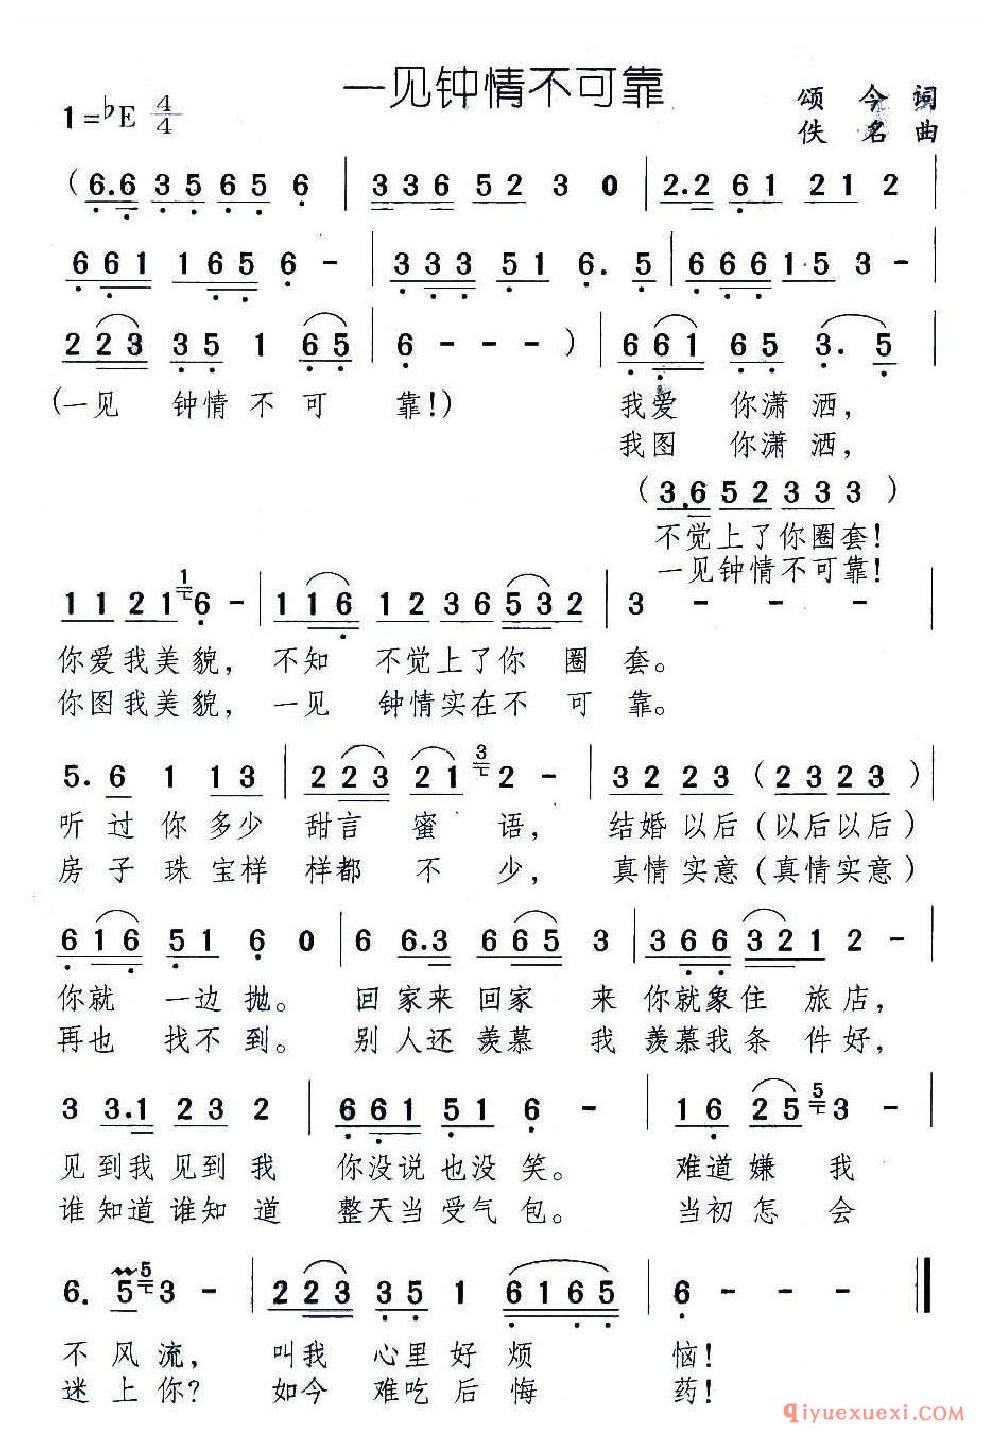 一见钟情不可靠
1=♭E 4/4
颂今词
佚名曲
(6.6 3 5 6 5 6 | 3 3 6 5 2 3 0 | 2.2 6 1 2 1 2 |
6 6 1 1 6 5 6 - | 3 3 3 5 1 6. 5 | 6 6 6 1 5 3 - |
2 2 3 3 5 1 6 5 | 6 - - - ) | 6 6 1 6 5 3. 5 |
(一见 钟情不可 靠!) 我爱 你潇洒,
我图 你潇洒,
(3.6 5 2 3 3 3 3)
不觉上了你圈套!
一见钟情不可靠!
1 1 2 1 1 6 - | 1 1 6 1 2 3 6 5 3 2 | 3 - - - |
你爱我美貌, 不知 不觉上了你 圈 套。
你图我美貌, 一见 钟情实在不 可 靠。
5. 6 1 1 3 | 2 2 3 2 1 3 2 - | 3 2 2 3 (2 3 2 3) |
听过你多少 甜言 蜜 语, 结婚以后(以后以后)
房子珠宝样 样都 不 少, 真情实意(真情实意)
6 1 6 5 1 6 0 | 6 6.3 6 6 5 3 | 3 6 6 3 2 1 2 - |
你就 一边抛。 回家来回家 来 你就象住 旅店,
再也 找不到。 别人还羡慕 我 羡慕我条 件好,
3 3.1 2 3 2 | 6 6 1 5 1 6 - | 1 6 2 5 5 3 - |
见到我见到我 你没说也没笑。 难道嫌 我
谁知道谁知道 整天当受气包。 当初怎 会
6. 5 5 3 - | 2 2 3 3 5 1 6 1 6 5 | 6 - - ‖
不风流, 叫我 心里好烦 恼!
迷上你? 如今 难吃后悔 药!
qiyuexuexi.com